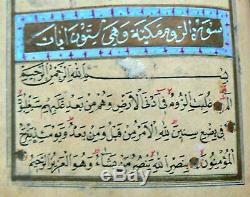 سورة الروم مكية وهي ستون آيات
بسم الله الرحمن الرحيم
الم غلبت الروم في أدنى الأرض وهم من بعد غلبهم سيغلبون
في بضع سنين لله الأمر من قبل ومن بعد ويومئذ يفرح
المؤمنون بنصر الله ينصر من يشاء وهو العزيز الرحيم